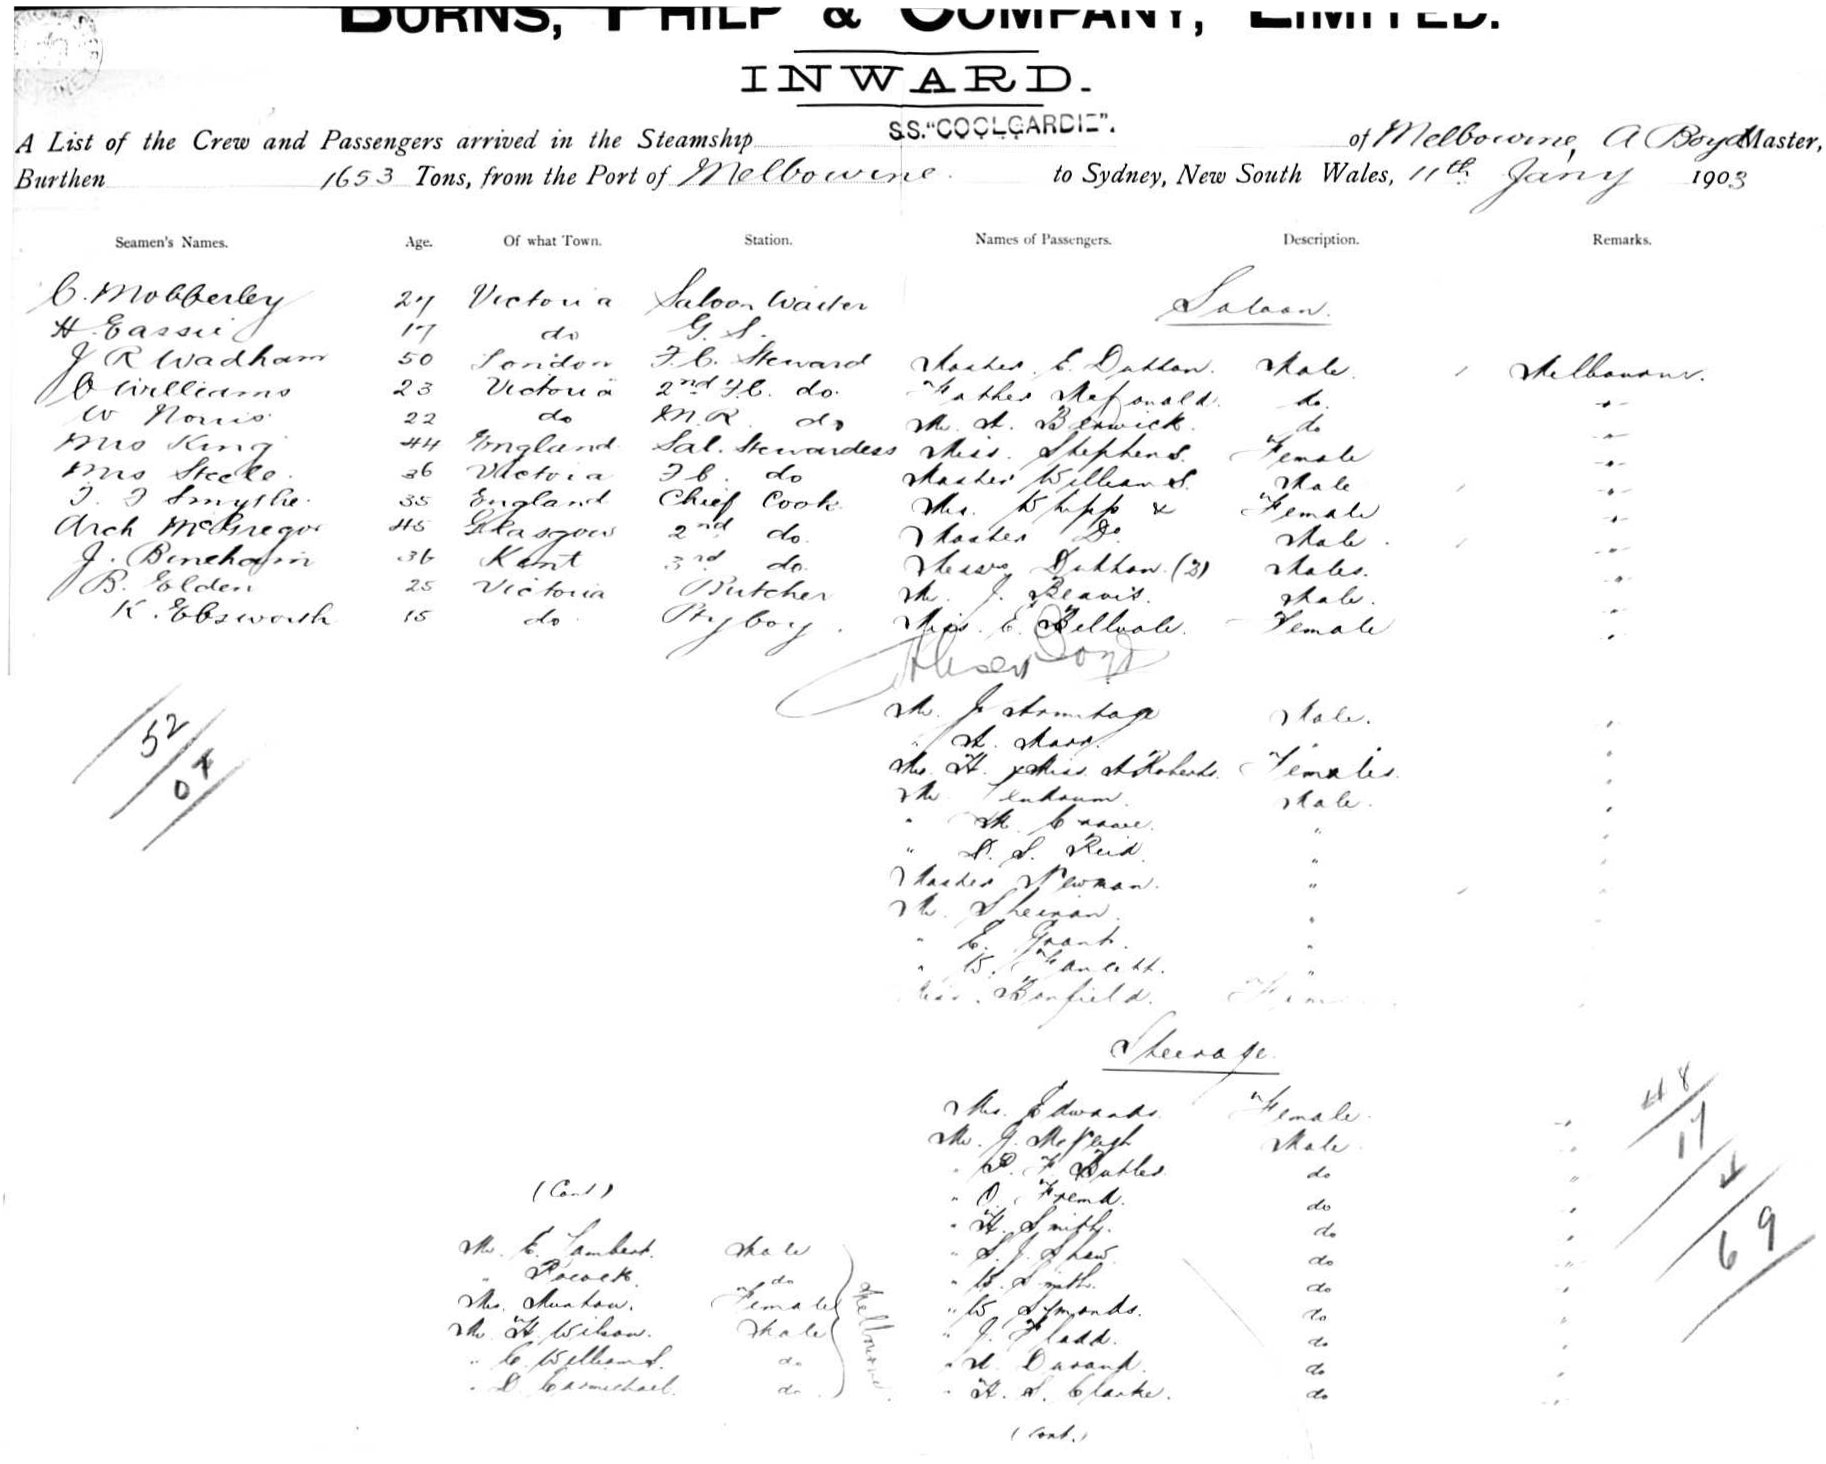 BURNS, PHILP & COMPANY, LIMITED.
INWARD.
A List of the Crew and Passengers arrived in the Steamship S.S. "COOLGARDIE". of Melbourne, A Boyd Master,
Burthen 1653 Tons, from the Port of Melbourne to Sydney, New South Wales, 11th Jany 1903
Seamen's Names. Age. Of what Town. Station. Names of Passengers. Description. Remarks.
C. Mobberley 27 Victoria Saloon Waiter
Saloon.
H. Eassie 17 do G. S.
J R Wadham 50 London F.C. Steward Master E. Dutton. Male. Melbourne.
O Williams 23 Victoria 2nd F.C. do. Father McDonald. do. "
W Norris 22 do M.R. do Mr. A. Berwick. do "
Mrs King 44 England Sal. Stewardess Miss. Stephens. Female "
Mrs Steele. 36 Victoria F.C. do Master Williams. Male "
T. J Smythe. 35 England Chief Cook Mrs. Whipp & Female "
Arch McGregor 45 Glasgow 2nd do. Master Do. Male. "
J. Bineham 36 Kent 3rd do. Messrs Dutton (3) Males. "
B. Elden 25 Victoria Butcher Mr. J. Beavis. Male. "
K. Ebsworth 15 do Ptyboy. Miss. E. Bellvale. Female "
Alex Boyd
Mr. J. Armitage Male. "
" A. Marr.
52
04
Mrs. H. & Miss. A Roberts. Females. "
Mr. Male. "
" M. " "
" D. S. Reid. " "
Master Newman. " "
Mr. Sheiran. " "
" E. Grant. "
" W. Fawcett. "
Miss. Bonfield. Fem
Steerage.
Mrs. Edwards. Female. "
48
17
69
Mr. J. McVeigh Male "
" P. F. Butler. do "
" O. Fremd. do "
" H. Smith. do "
" S. J. Shaw. do "
" W. Smith. do "
" W. Symonds. do "
" J. Fladd. do "
" A. Durand. do "
" H. S. Clarke. do "
(Cont.)
(Cont)
Mr. E. Lambert. Male
" Pocock. do
Mrs. Munton. Female
Mr. H. Wilson. Male
" C. Williams. do
" D. Carmichael. do
Melbourne